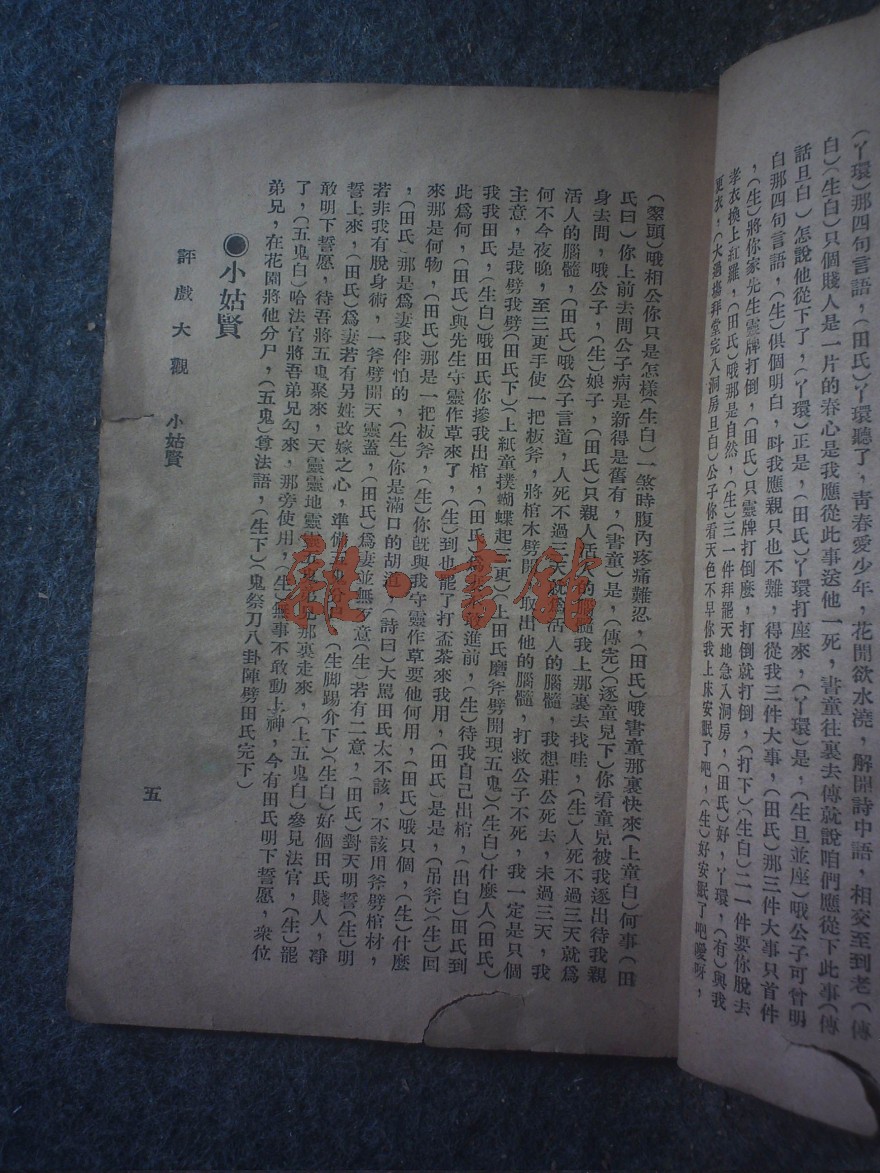 (丫環)那四句言語，(田氏)丫環聽了，青春愛少年，花開欲水澆，解開詩中語，相交至到老(傳
白)(生白)只個賤人是一片的春心是我應從此事送他一死，書童往裏去傳就說咱們應從下此事(傳
話旦白)怎說他從下了，(丫環)正是，(田氏)丫環打座來，(丫環)是，(生旦並座)哦公子可曾明
白那四句言語，(生)俱個明白，呌我應親只也不難，得從我三件大事，(田氏)那三件大事只首件
，(生)將你家先生靈牌打倒，(田氏)只靈牌打倒麽，打倒就打倒，(打下)(生白)二一件要你脫去
孝衣換上紅羅，(田氏)哦那是自然，(生)三一件拜罷天地急入洞房，(田氏)好，丫環，(有)與我
更衣，(大過塲拜堂完入洞房旦白)公子你看天色不早你我上床安眠了吧，(生)好安眠了吧噯呀，
(翠頭)哦相公你只是怎樣(生白)一煞時腹內疼痛難忍，(田氏)哦書童那裏快來(上童白)何事(田
氏曰)你上前去問公子病是新得是舊有，(書童)是，(傳完)(逐童兒下)你看童兒被我逐出待我親
身去問，哦公子，(生)娘子，(田氏)只親人活人的腦髓我上那裏去找哇，(生)人死不過三天就爲
活人的腦髓，(田氏)哦公子言道，人死不過三天就爲活人的腦髓，我想莊公死去，未過三天，我
何不今夜晚，至三更手使一把板斧，將棺木劈開取出他的腦髓，打救公子不死，我一定是只個
主意，是我劈我劈(田氏下)(上紙童撲蝴蝶起三更)(上田氏磨斧劈開現五鬼)(生白)什麼人(田氏)
我我田氏，(生白)哦田氏你摻我出棺，(田氏)進前，(生)待我自己出棺，(出白)田氏到
此爲何，(田氏)與先生守靈作草來了，(生)到也罷了打盃茶來我用，(田氏)是是，(吊斧)(生)回
來那是何物，(田氏)那是一把板斧，(生)你旣與我守靈作草要他何用，(田氏)哦只個，(生)什麼
，(田氏)那是爲妻我伴怕的，(生)你是滿口的胡道(詩曰)大罵田氏太不該，不該用斧劈棺材，
若非我有脫身術，一斧劈開天靈蓋，(田氏)爲妻並無歹意(生)若有二意，(田氏)對天明誓(生)明
誓上來，(田氏)爲妻若有另姓改嫁之心，準備五鬼(生脚踢介下)(生白)好個田氏賤人，胆
敢明下誓愿，待吾將五鬼聚來，天靈靈地靈靈五鬼弟兄那裏走來，(上五鬼白)參見法官，(生)罷
了，(五鬼白)哈法官將吾弟兄勾來，那旁使用，(生)無事不敢動上神，今有田氏明下誓愿，衆位
弟兄，在花園將他分尸，(五鬼)尊法語，(生下)(鬼祭刀八卦陣劈田氏完下)
●小姑賢
評戲大觀 小姑賢
五
雜·書館